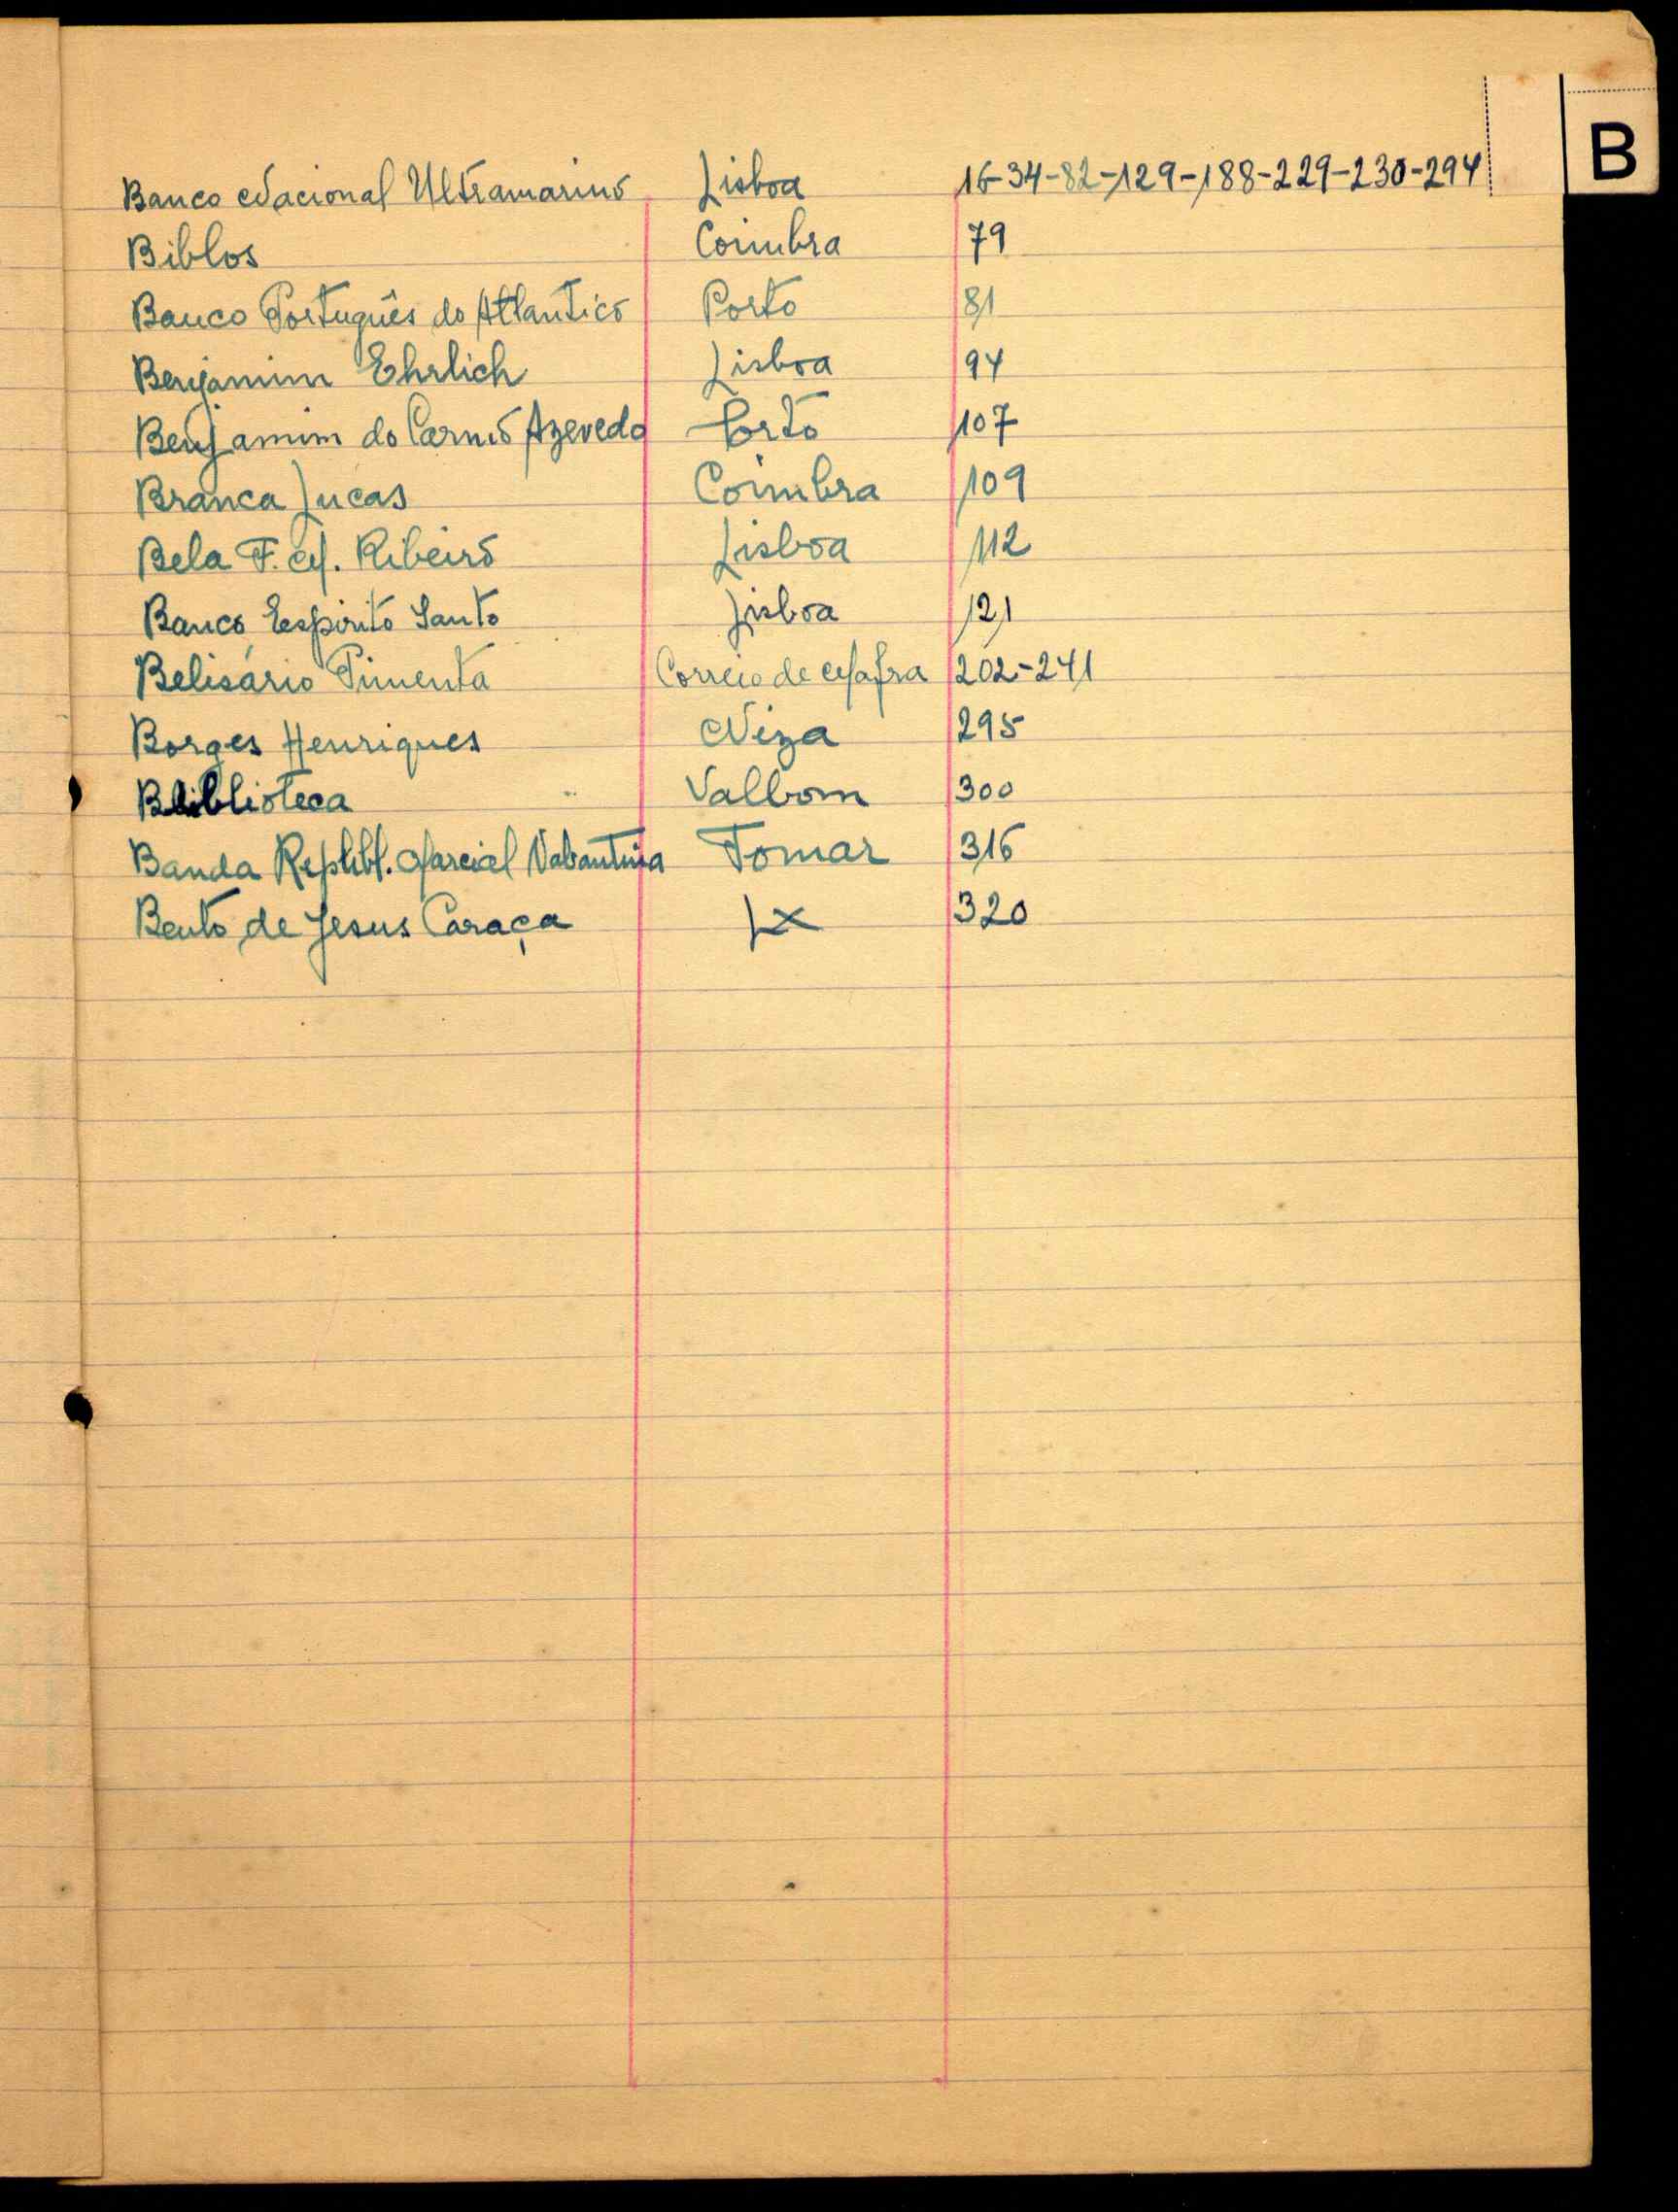 B
Banco Nacional Ultramarino Lisboa 16-34-82-129-188-229-230-294
Biblos Coimbra 79
Banco Português do Atlantico Porto 81
Benjamim Ehrlich Lisboa 94
Benjamim do Carmo Azevedo Porto 107
Branca Lucas Coimbra 109
Bela F. M. Ribeiro Lisboa 112
Banco Espirito Santo Lisboa 121
Belisário Pimenta Correio de Mafra 202-241
Borges Henriques Niza 295
Biblioteca Valbom 300
Banda Republ. Marcial Nabantina Tomar 316
Bento de Jesus Caraça Lx 320